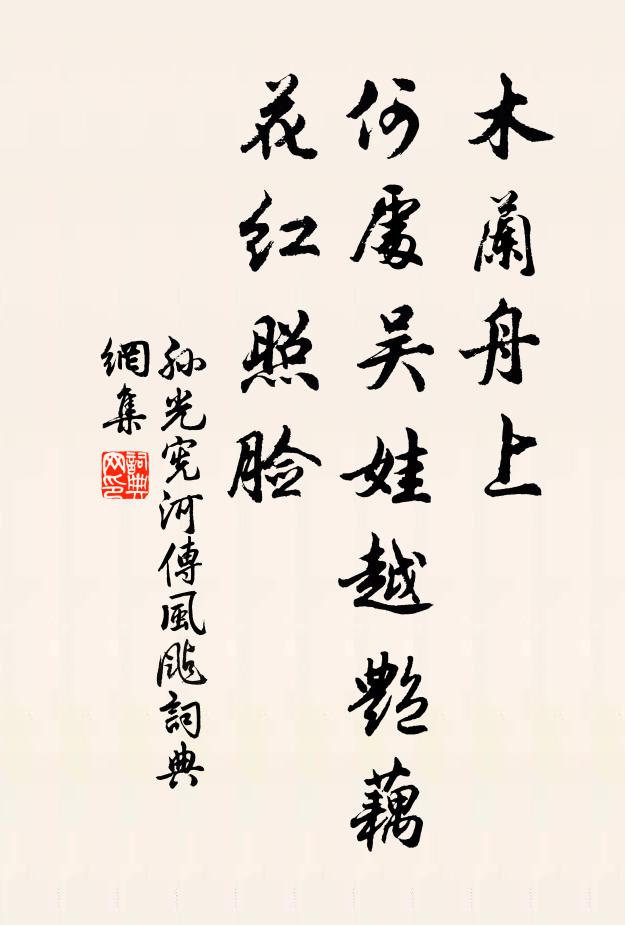 木蘭舟上
何處吴娃越艷藕
花红照脸
孙光宪河傳風颭詞典
網集
詞典网印